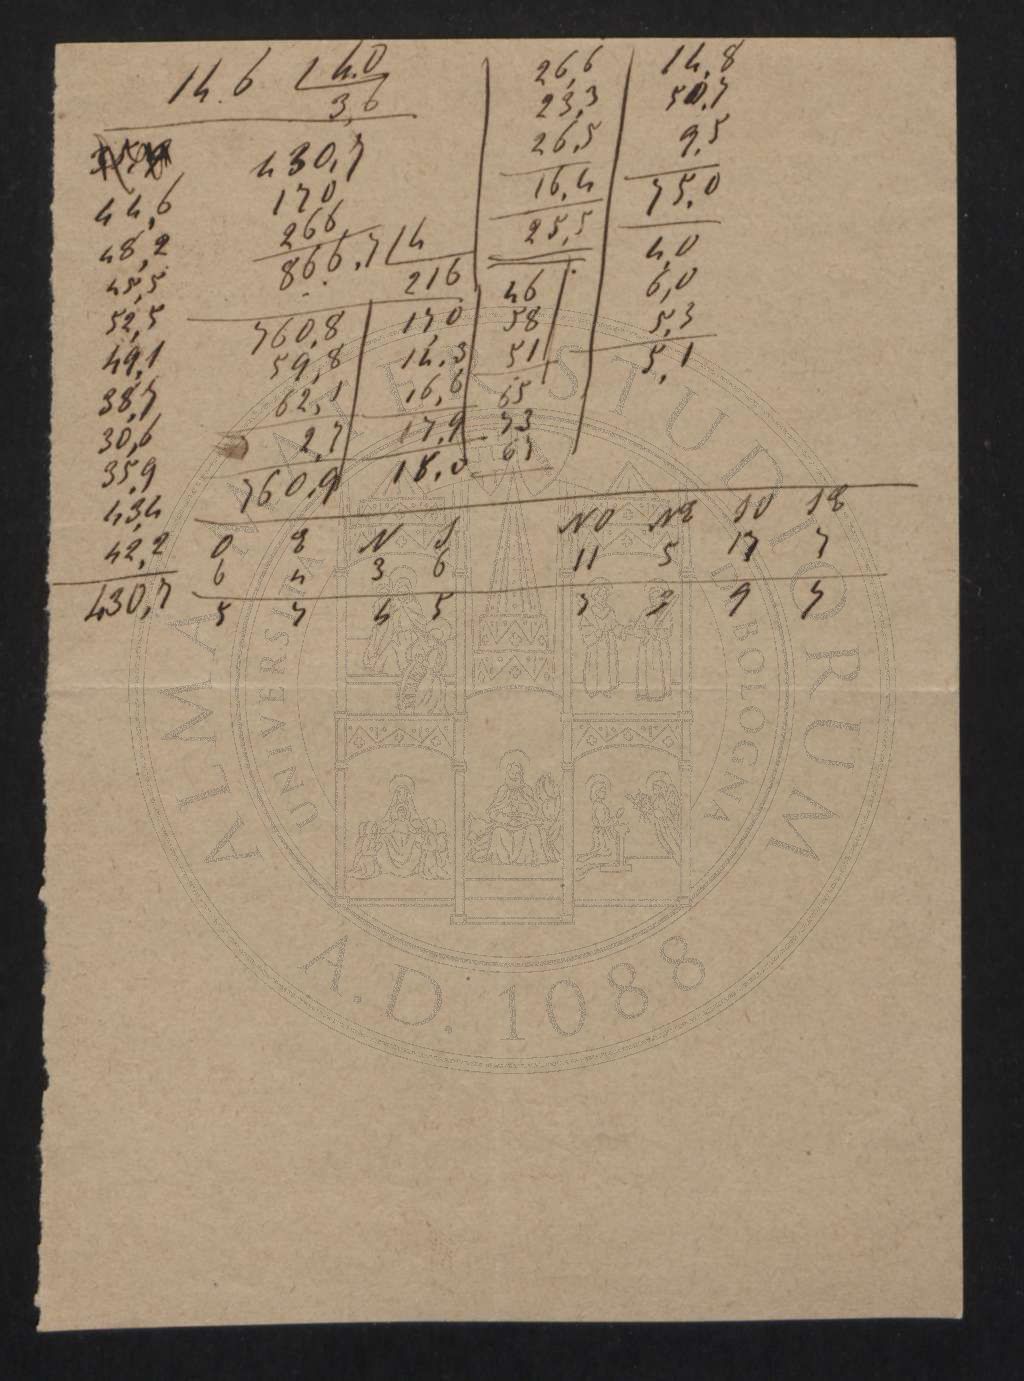 14.6 4.0
3,6
44,6
48,2
45,5
52,5
49,1
38,7
30,6
35,9
43,4
42,2
430,7
430,7
170
266
866,7 4
216
760,8
59,8
62,1
2,7
760,9
17,0
14.3
16,6
17,9
18,0
26,6
23,3
26,5
16,4
25,5
46
58
51
65
73
67
14,8
50,7
9,5
75,0
4,0
6,0
5,3
5,1
O E N S NO NE SO SE
6 4 3 6 11 5 17 7
5 7 4 5 7 2 9 7
ALMA MATER STUDIORUM
UNIVERSITÀ DI BOLOGNA
A.D. 1088